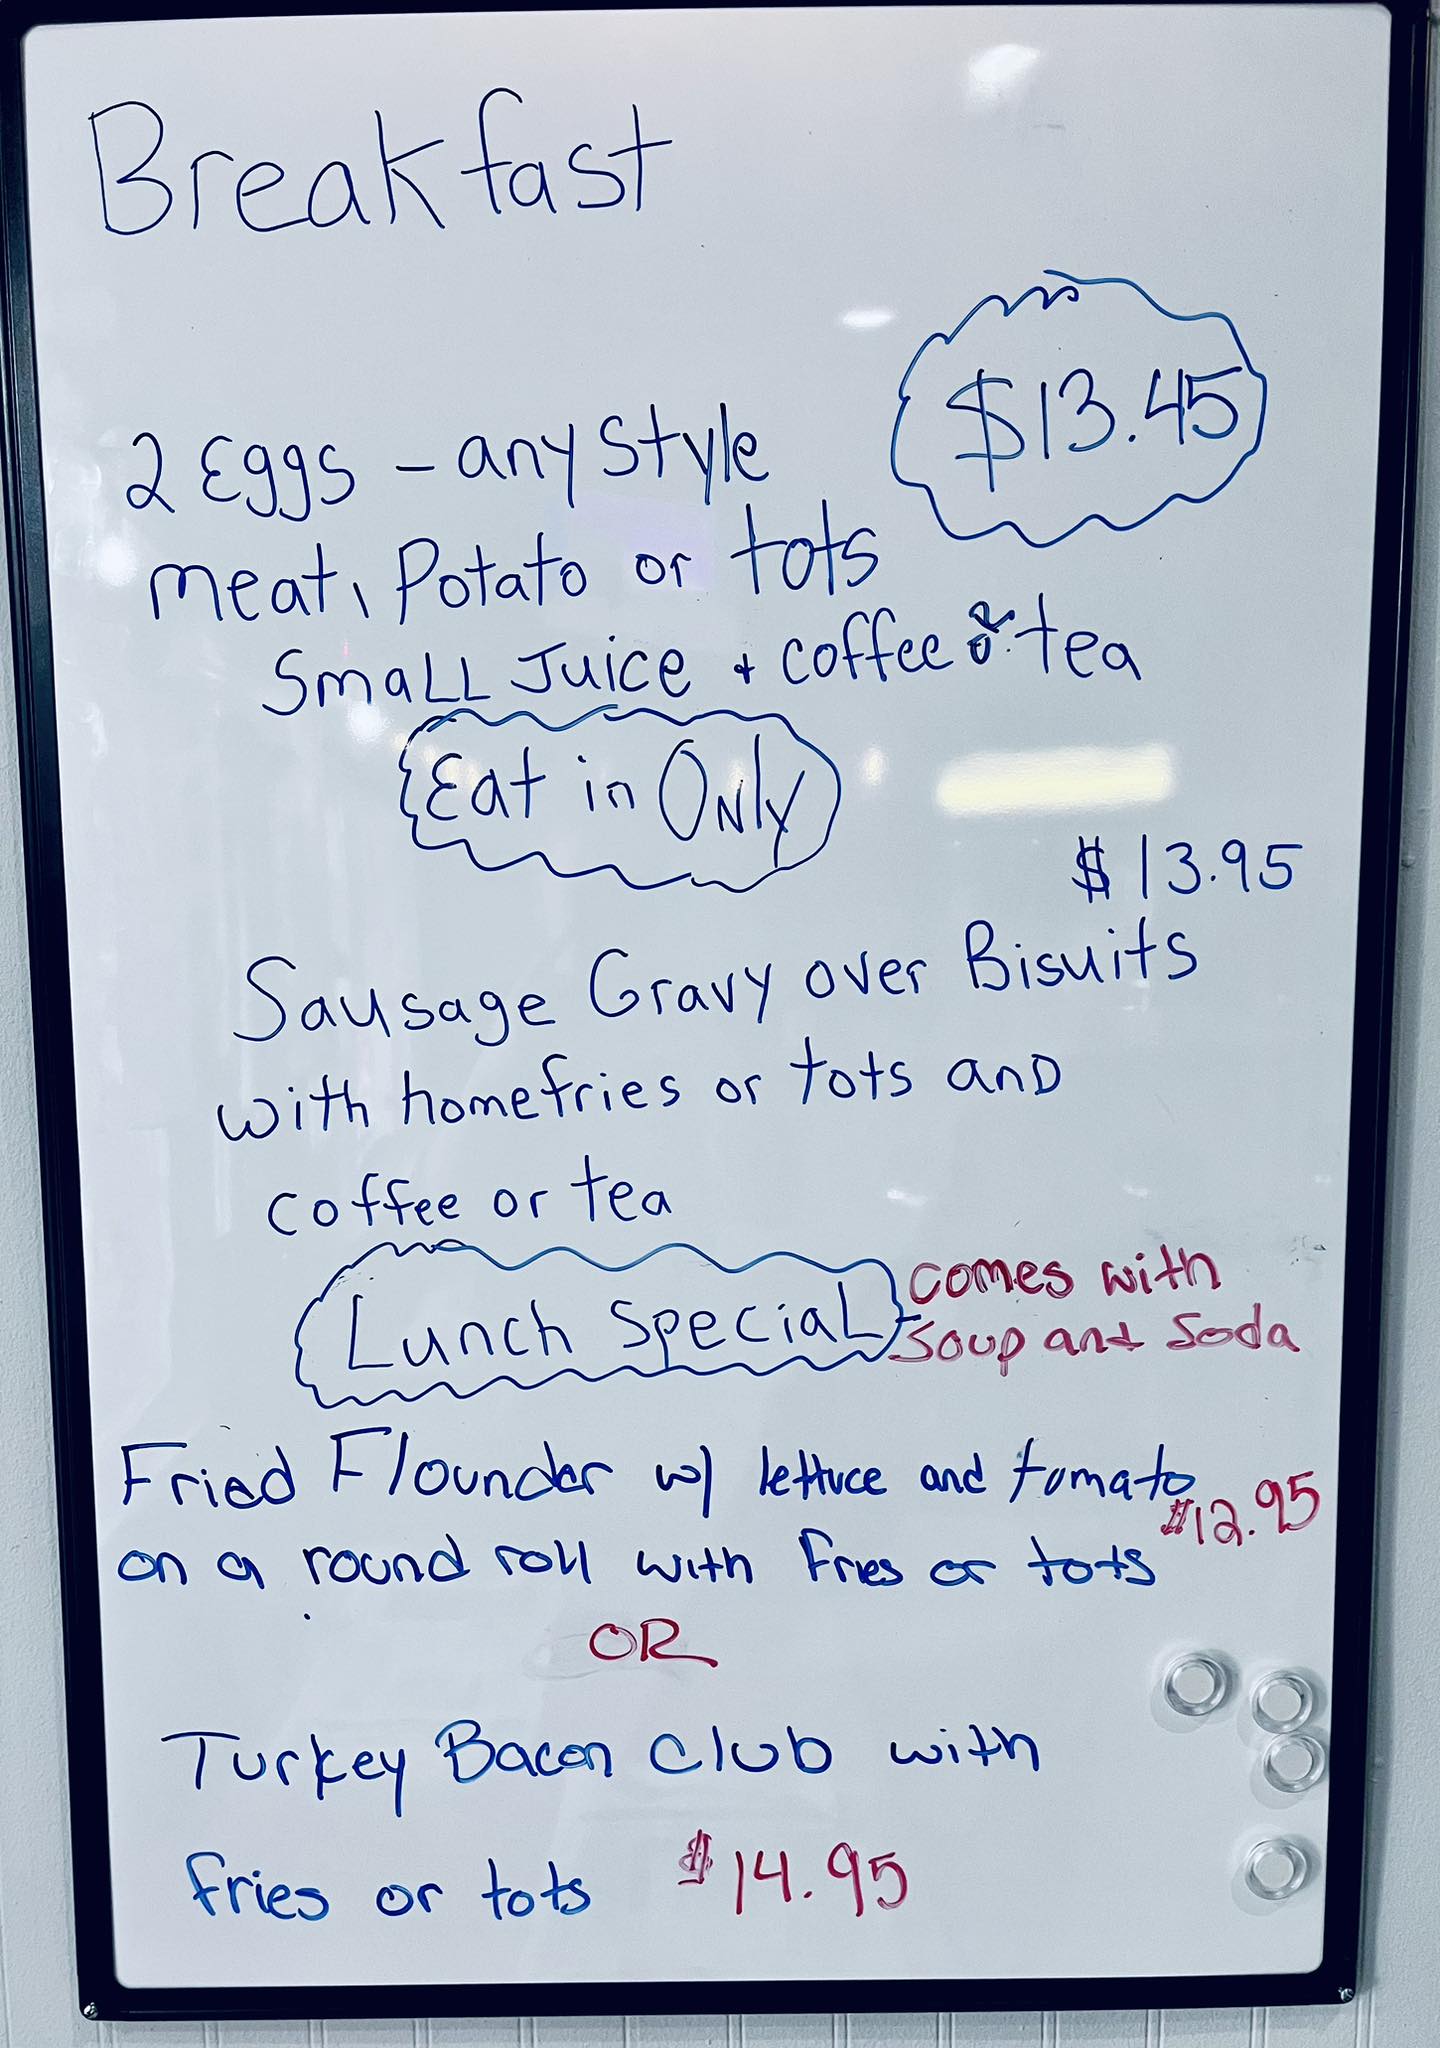 Breakfast
$13.45
2 Eggs - any Style
meat, Potato or tots
Small Juice + coffee or tea
Eat in Only
$13.95
Sausage Gravy over Bisuits
with homefries or tots and
coffee or tea
Lunch Special - comes with
Soup and Soda
Fried Flounder w/ lettuce and tomato
$12.95
on a round roll with Fries or tots
OR
Turkey Bacon Club with
fries or tots $14.95